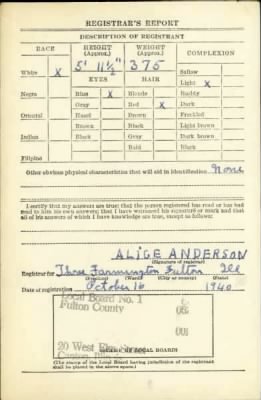 REGISTRAR'S REPORT
DESCRIPTION OF REGISTRANT
RACE HEIGHT (Approx.) WEIGHT (Approx.) COMPLEXION
5' 11½" 375
White X Sallow
EYES HAIR Light X
Negro Blue X Blonde Ruddy
Gray Red X Dark
Oriental Hazel Brown Freckled
Brown Black Light brown
Indian Black Gray Dark brown
Bald Black
Filipino
Other obvious physical characteristics that will aid in identification None
I certify that my answers are true; that the person registered has read or has had
read to him his own answers; that I have witnessed his signature or mark and that
all of his answers of which I have knowledge are true, except as follows:
ALICE ANDERSON
(Signature of registrar)
Registrar for Three Farmington Fulton Ill
(Precinct) (Ward) (City or county) (State)
Date of registration October 16 1940
Local Board No. 1
Fulton County
20 West Elm
Canton,
(STAMP OF LOCAL BOARD)
(The stamp of the Local Board having jurisdiction of the registrant
shall be placed in the above space.)